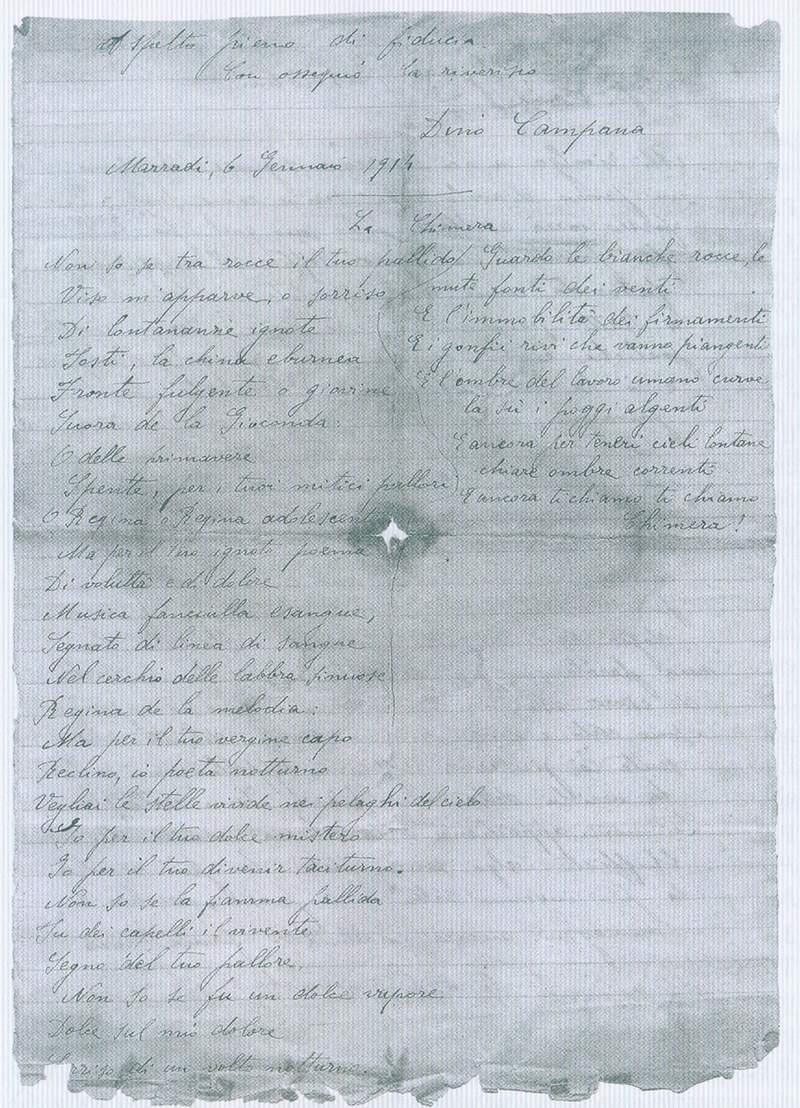 Aspetto pieno di fiducia.
Con ossequio la riverisco
Dino Campana
Marradi, 6 Gennaio 1914
La Chimera
Non so se tra rocce il tuo pallido
Viso m'apparve, o sorriso
Di lontananze ignote
Fosti, la china eburnea
Fronte fulgente o giovine
Suora de la Gioconda:
O delle primavere
Spente, per i tuoi mitici pallori
O Regina o Regina adolescente
Ma per il tuo ignoto poema
Di voluttà e di dolore
Musica fanciulla esangue,
Segnato di linea di sangue
Nel cerchio delle labbra sinuose
Regina de la melodia:
Ma per il tuo vergine capo
Reclino, io poeta notturno
Vegliai le stelle vivide nei pelaghi del cielo
Io per il tuo dolce mistero
Io per il tuo divenir taciturno.
Non so se la fiamma pallida
Fu dei capelli il vivente
Segno del tuo pallore,
Non so se fu un dolce vapore
Dolce sul mio dolore
Sorriso di un volto notturno.
Guardo le bianche rocce, le
mute fonti dei venti
E l'immobilità dei firmamenti
E i gonfii rivi che vanno piangenti
E l'ombre del lavoro umano curve
la sù i poggi algenti
E ancora per teneri cieli lontane
chiare ombre correnti
E ancora ti chiamo ti chiamo
Chimera!